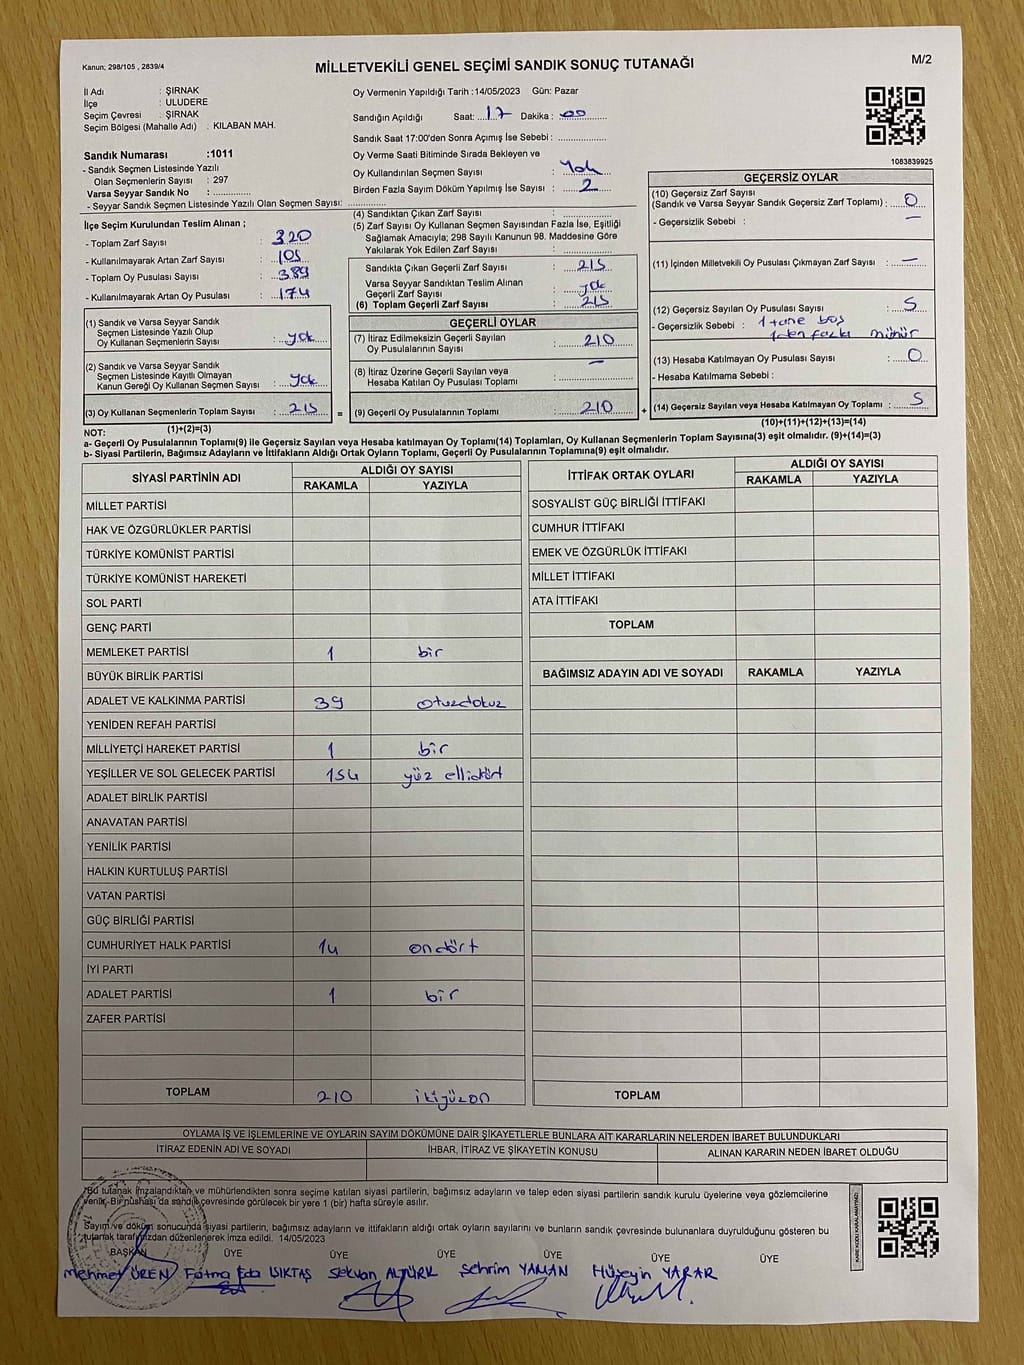 Kanun; 298/105 , 2839/4
MİLLETVEKİLİ GENEL SEÇİMİ SANDIK SONUÇ TUTANAĞI
M/2
İl Adı : ŞIRNAK
İlçe : ULUDERE
Seçim Çevresi : ŞIRNAK
Seçim Bölgesi (Mahalle Adı) : KILABAN MAH.
Oy Vermenin Yapıldığı Tarih :14/05/2023 Gün: Pazar
Sandığın Açıldığı Saat: 17 Dakika : 00
Sandık Saat 17:00'den Sonra Açımış İse Sebebi :
Oy Verme Saati Bitiminde Sırada Bekleyen ve
Oy Kullandırılan Seçmen Sayısı : Yok
Birden Fazla Sayım Döküm Yapılmış İse Sayısı : 2
1083839925
Sandık Numarası :1011
- Sandık Seçmen Listesinde Yazılı
Olan Seçmenlerin Sayısı : 297
Varsa Seyyar Sandık No :
- Seyyar Sandık Seçmen Listesinde Yazılı Olan Seçmen Sayısı:
İlçe Seçim Kurulundan Teslim Alınan ;
- Toplam Zarf Sayısı : 320
- Kullanılmayarak Artan Zarf Sayısı : 105
- Toplam Oy Pusulası Sayısı : 389
- Kullanılmayarak Artan Oy Pusulası : 174
(1) Sandık ve Varsa Seyyar Sandık
Seçmen Listesinde Yazılı Olup
Oy Kullanan Seçmenlerin Sayısı : yok
(2) Sandık ve Varsa Seyyar Sandık
Seçmen Listesinde Kayıtlı Olmayan
Kanun Gereği Oy Kullanan Seçmen Sayısı : yok
(3) Oy Kullanan Seçmenlerin Toplam Sayısı : 215 =
(1)+(2)=(3)
(4) Sandıktan Çıkan Zarf Sayısı :
(5) Zarf Sayısı Oy Kullanan Seçmen Sayısından Fazla İse, Eşitliği
Sağlamak Amacıyla; 298 Sayılı Kanunun 98. Maddesine Göre
Yakılarak Yok Edilen Zarf Sayısı :
Sandıkta Çıkan Geçerli Zarf Sayısı : 215
Varsa Seyyar Sandıktan Teslim Alınan
Geçerli Zarf Sayısı : yok
(6) Toplam Geçerli Zarf Sayısı : 215
GEÇERLİ OYLAR
(7) İtiraz Edilmeksizin Geçerli Sayılan
Oy Pusulalarının Sayısı : 210
(8) İtiraz Üzerine Geçerli Sayılan veya
Hesaba Katılan Oy Pusulası Toplamı : —
(9) Geçerli Oy Pusulalarının Toplamı : 210 +
GEÇERSİZ OYLAR
(10) Geçersiz Zarf Sayısı
(Sandık ve Varsa Seyyar Sandık Geçersiz Zarf Toplamı) : 0
- Geçersizlik Sebebi : —
(11) İçinden Milletvekili Oy Pusulası Çıkmayan Zarf Sayısı : —
(12) Geçersiz Sayılan Oy Pusulası Sayısı : 5
- Geçersizlik Sebebi : 1 tane boş
1den fazla mühür
(13) Hesaba Katılmayan Oy Pusulası Sayısı : 0
- Hesaba Katılmama Sebebi :
(14) Geçersiz Sayılan veya Hesaba Katılmayan Oy Toplamı : 5
(10)+(11)+(12)+(13)=(14)
NOT:
a- Geçerli Oy Pusulalarının Toplamı(9) ile Geçersiz Sayılan veya Hesaba katılmayan Oy Toplamı(14) Toplamları, Oy Kullanan Seçmenlerin Toplam Sayısına(3) eşit olmalıdır. (9)+(14)=(3)
b- Siyasi Partilerin, Bağımsız Adayların ve İttifakların Aldığı Ortak Oyların Toplamı, Geçerli Oy Pusulalarının Toplamına(9) eşit olmalıdır.
SİYASİ PARTİNİN ADI ALDIĞI OY SAYISI
RAKAMLA YAZIYLA
MİLLET PARTİSİ
HAK VE ÖZGÜRLÜKLER PARTİSİ
TÜRKİYE KOMÜNİST PARTİSİ
TÜRKİYE KOMÜNİST HAREKETİ
SOL PARTİ
GENÇ PARTİ
MEMLEKET PARTİSİ 1 bir
BÜYÜK BİRLİK PARTİSİ
ADALET VE KALKINMA PARTİSİ 39 otuzdokuz
YENİDEN REFAH PARTİSİ
MİLLİYETÇİ HAREKET PARTİSİ 1 bir
YEŞİLLER VE SOL GELECEK PARTİSİ 154 yüz ellidört
ADALET BİRLİK PARTİSİ
ANAVATAN PARTİSİ
YENİLİK PARTİSİ
HALKIN KURTULUŞ PARTİSİ
VATAN PARTİSİ
GÜÇ BİRLİĞİ PARTİSİ
CUMHURİYET HALK PARTİSİ 14 ondört
İYİ PARTİ
ADALET PARTİSİ 1 bir
ZAFER PARTİSİ
TOPLAM 210 ikiyüzon
İTTİFAK ORTAK OYLARI ALDIĞI OY SAYISI
RAKAMLA YAZIYLA
SOSYALİST GÜÇ BİRLİĞİ İTTİFAKI
CUMHUR İTTİFAKI
EMEK VE ÖZGÜRLÜK İTTİFAKI
MİLLET İTTİFAKI
ATA İTTİFAKI
TOPLAM
BAĞIMSIZ ADAYIN ADI VE SOYADI RAKAMLA YAZIYLA
TOPLAM
OYLAMA İŞ VE İŞLEMLERİNE VE OYLARIN SAYIM DÖKÜMÜNE DAİR ŞİKAYETLERLE BUNLARA AİT KARARLARIN NELERDEN İBARET BULUNDUKLARI
İTİRAZ EDENİN ADI VE SOYADI İHBAR, İTİRAZ VE ŞİKAYETİN KONUSU ALINAN KARARIN NEDEN İBARET OLDUĞU
Bu tutanak imzalandıktan ve mühürlendikten sonra seçime katılan siyasi partilerin, bağımsız adayların ve talep eden siyasi partilerin sandık kurulu üyelerine veya gözlemcilerine
verilir. Bir nüshası da sandık çevresinde görülecek bir yere 1 (bir) hafta süreyle asılır.
Sayım ve döküm sonucunda siyasi partilerin, bağımsız adayların ve ittifakların aldığı ortak oyların sayılarını ve bunların sandık çevresinde bulunanlara duyrulduğunu gösteren bu
tutanak tarafımızdan düzenlenerek imza edildi. 14/05/2023
BAŞKAN ÜYE ÜYE ÜYE ÜYE ÜYE ÜYE
Mehmet ÜREN Fatma Eda IŞIKTAŞ Serkan ALTÜRK Şehrim YAMAN Hüseyin YAŞAR